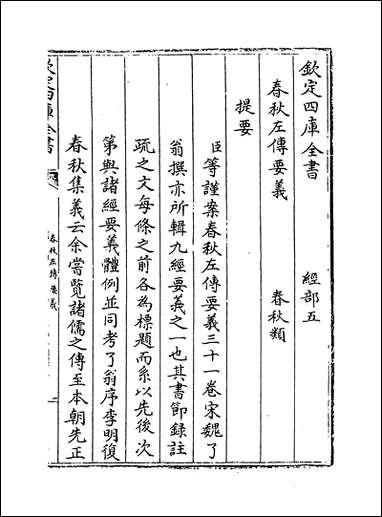 欽定四庫全書　經部五
春秋左傳要義　春秋類
提要
臣等謹案春秋左傳要義三十一卷宋魏了
翁撰亦所輯九經要義之一也其書節錄註
疏之文每條之前各為標題而系以先後次
第與諸經要義體例並同考了翁序李明復
春秋集義云余嘗覽諸儒之傳至本朝先正
欽定四庫全書
春秋左傳要義